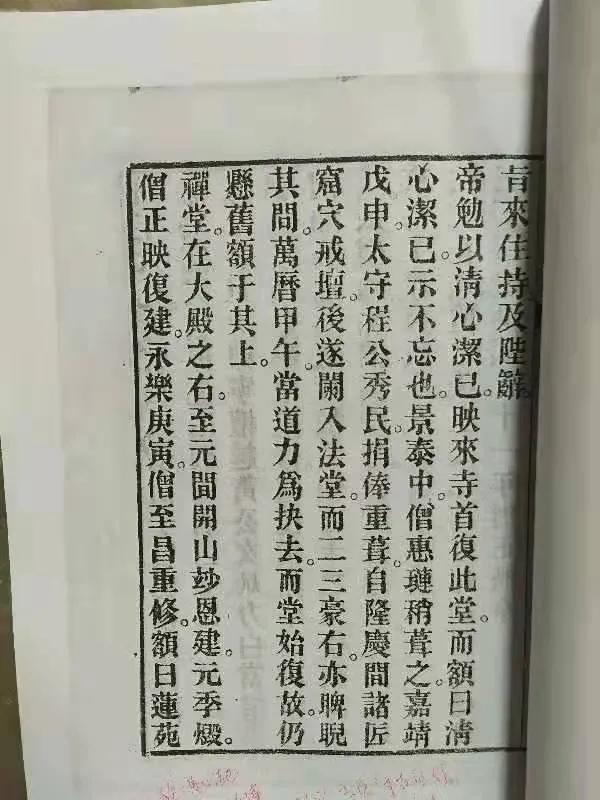 旨來住持及陛辭。
帝勉以清心潔已。映來寺首復此堂。而額曰清
心潔已。示不忘也。景泰中。僧惠璉稍葺之。嘉靖
戊申。太守程公秀民。捐俸重葺。自隆慶間諸匠
窟穴戒壇。後遂闌入法堂。而二三豪右。亦睥睨
其間。萬曆甲午。當道力爲抉去。而堂始復故。仍
懸舊額于其上。
禪堂。在大殿之右。至元間開山玅恩建。元季燬。
僧正映復建。永樂庚寅。僧至昌重修。額曰蓮苑